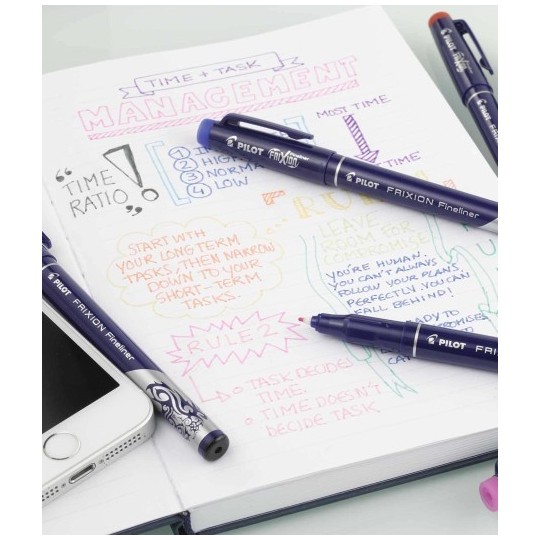 TIME + TASK
MANAGEMENT
MOST TIME
"TIME
RATIO"
!
1
2 HIGH
3 NORMA
4 LOW
TIME
PILOT FRIXION
PILOT FRIXION Fineliner
RU
LEAVE
ROOM FOR
START WTH
YOUR LONG TERM
TASKS, THEN NARROW
DOWN TO YOUR
SHORT-TERM
TASKS.
YOU'RE HUMAN.
YOU CAN'T ALWAYS
FOLLOW YOUR PLANS
PERFECTLY. YOU CAN
FALL BEHIND!
READY TO
RULE 2
TASK DECIDES
TIME.
TIME DOESN'T
DECIDE TASK
PILOT FRIXION Fineliner
PILOT FRI